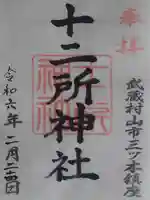 奉拝
武蔵村山市三ツ木鎮座
十二所神社
令和六年二月二十四日